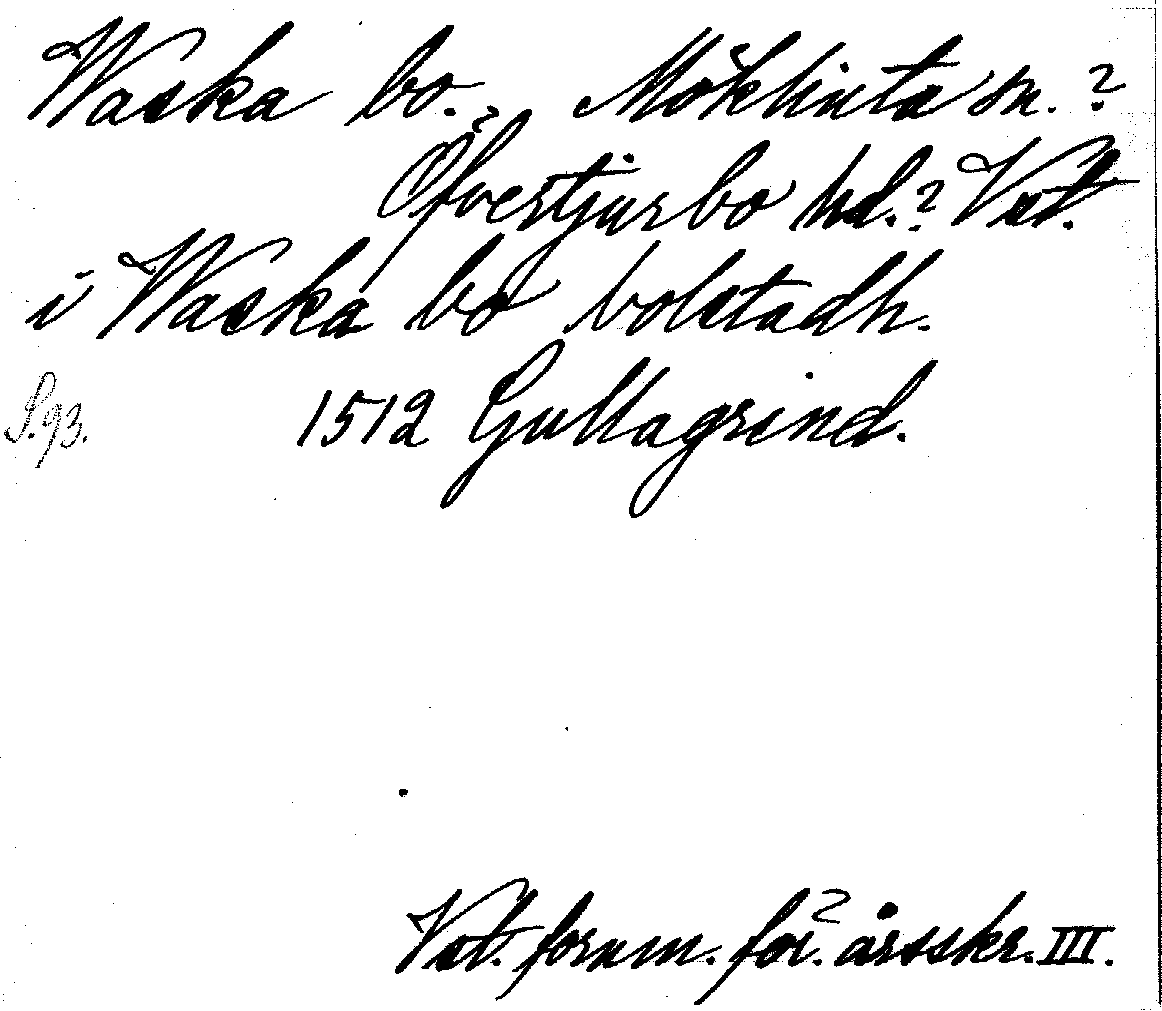 Waska bo. Möklinta sn.?
Öfvertjurbo hd.? Vst.
i Waska bo bolstadh.
S. 93. 1512 Gullagrind.
Vst. fornm. för:s årsskr. III.